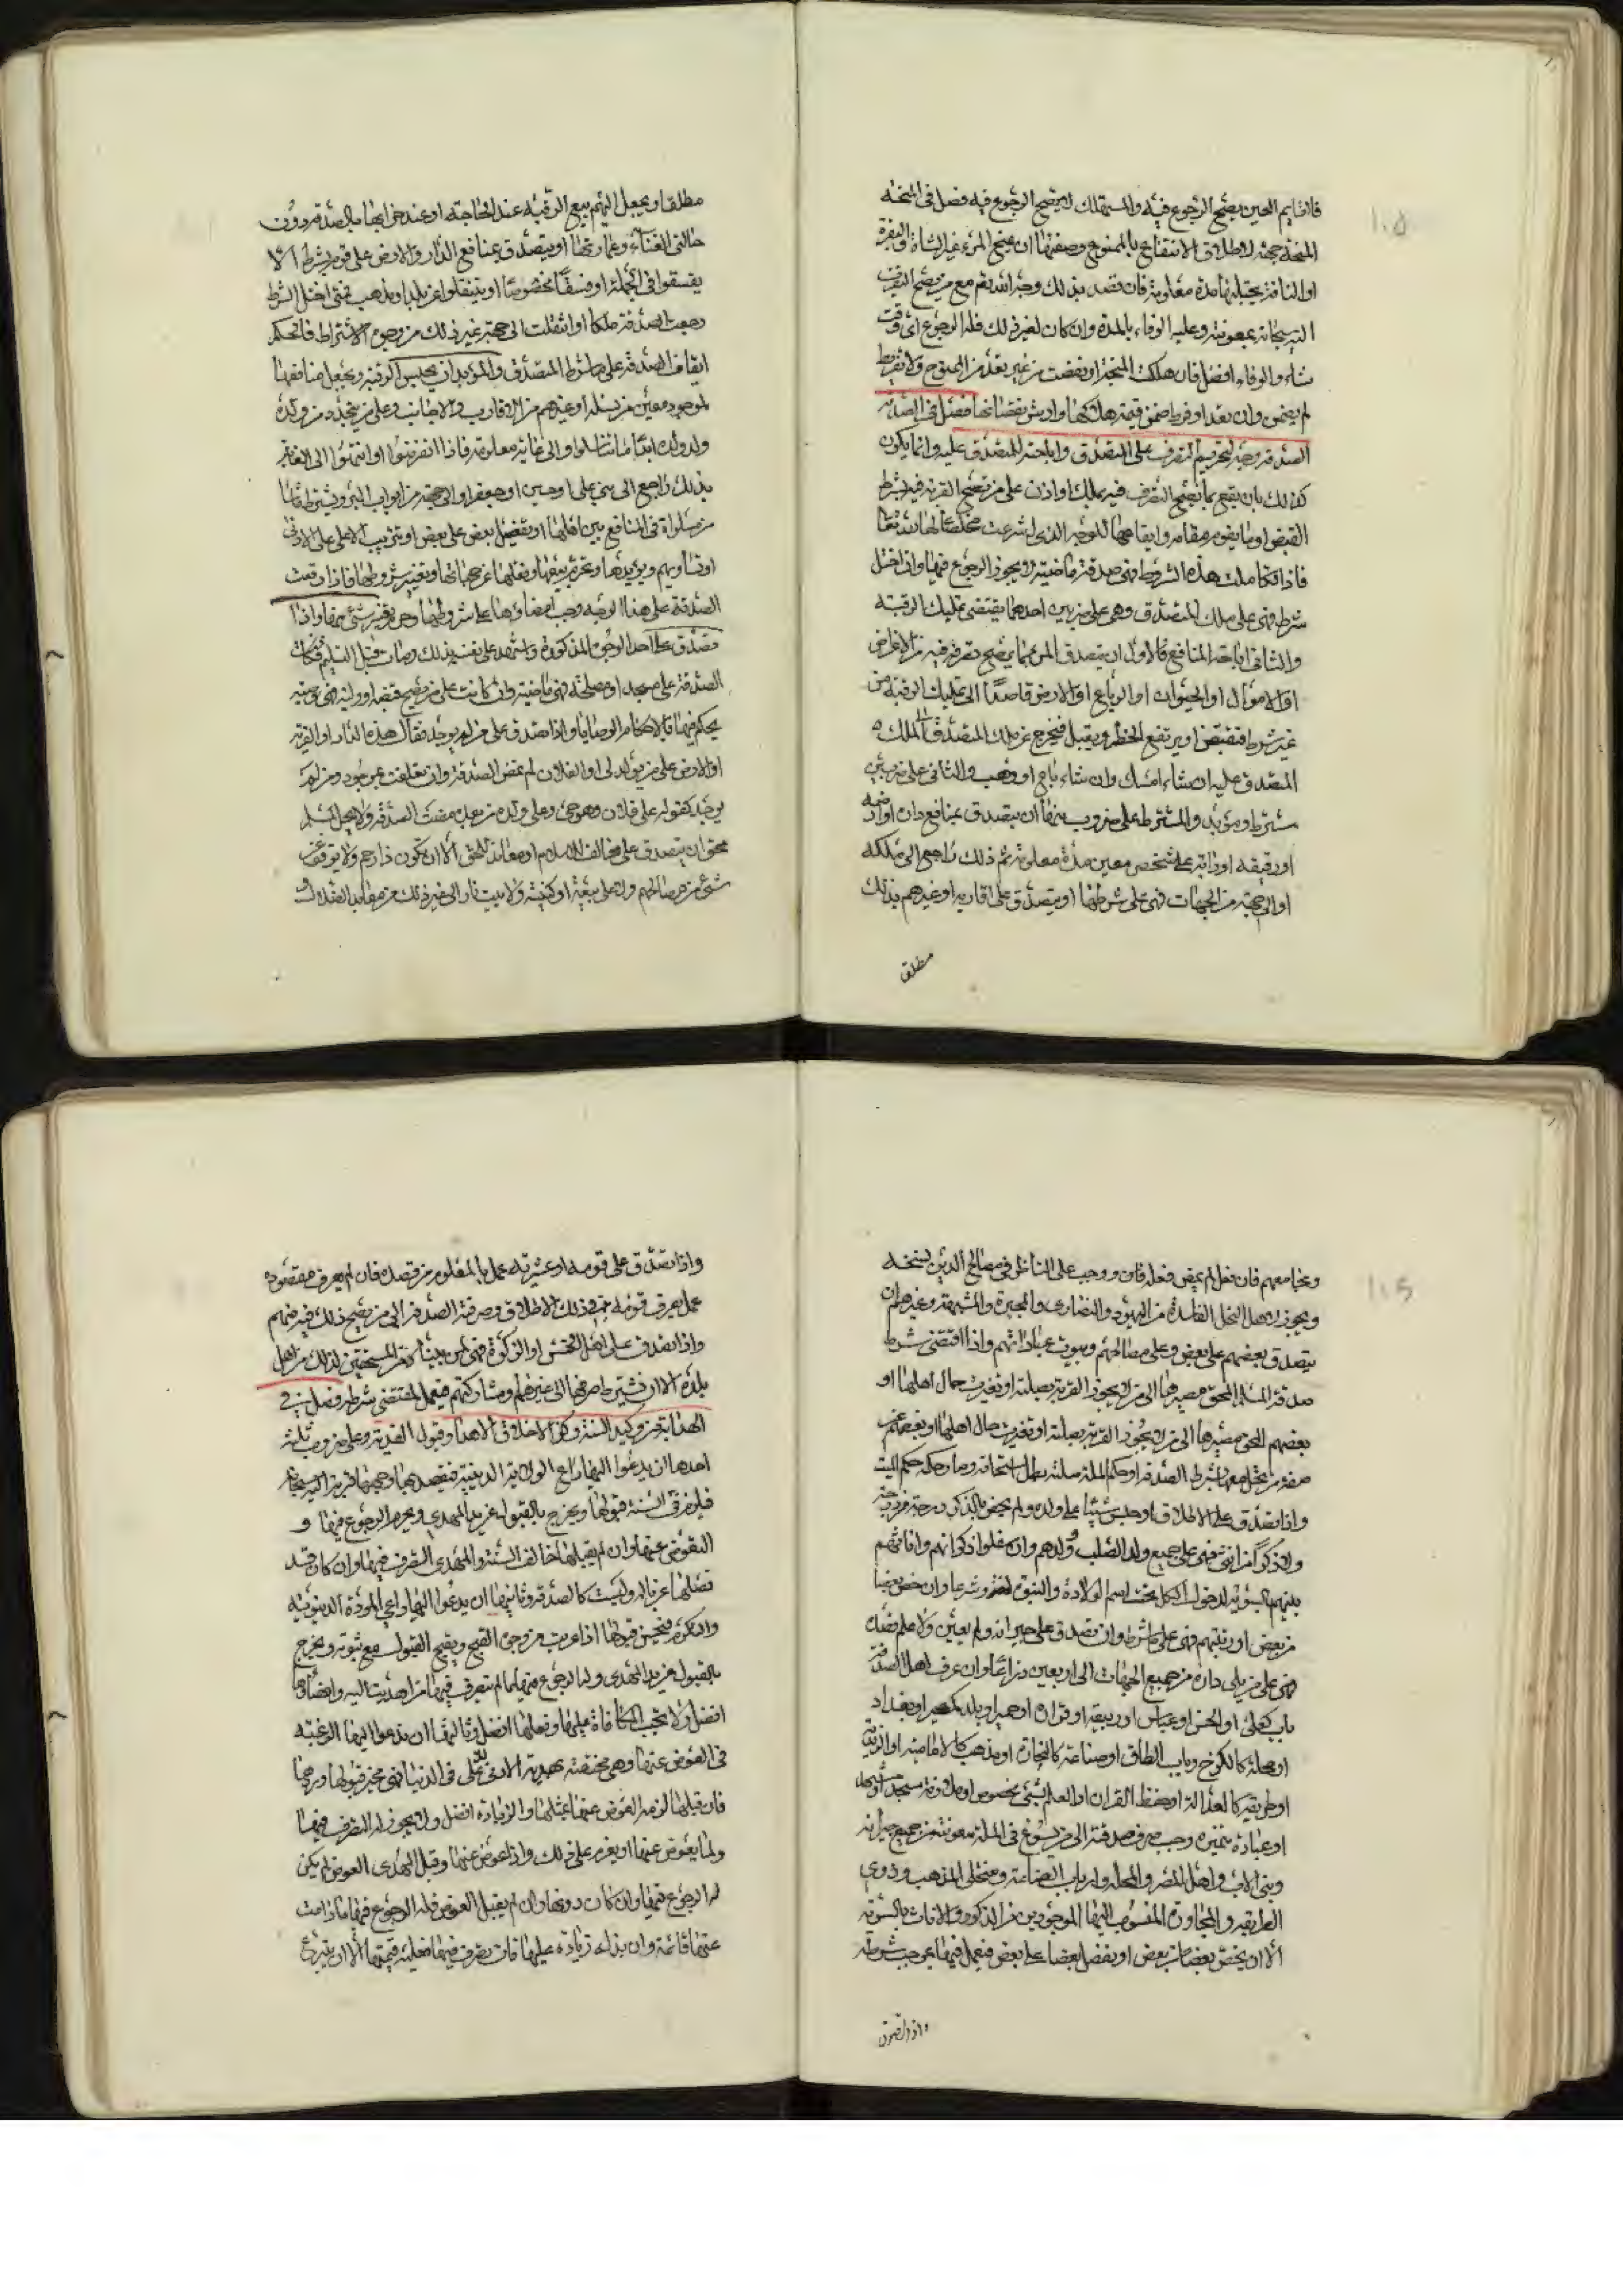 فالقايم العين يصح الرجوع فيه والمستهلك لا يصح الرجوع فيه فصل في المنحة
المنحة جهة لاطلاق الانتفاع بالممنوح وصفتها ان يمنح المرء غيره الشاة او البقرة
او الناقة يحتلبها مدة معلومة فان قصد بذلك وجه الله تعم مع من يصح التقرب
اليه سبحانه بمعونته وعليه الوفاء بالمدة وان كان لغير ذلك فله الرجوع اي وقت
شاء والوفاء افضل فان هلكت المنحة او نقصت من غير تعد من الممنوح ولا تفريط
لم يضمن وان تعدا او فرط ضمن قيمة هلاكها وارش نقصانها فصل في الصدقة
الصدقة وجه لتحريم التصرف على المتصدق واباحته للمتصدق عليه وانما يكون
كذلك بان يقع بما يصح التصرف فيه بملك او اذن على من يصح القربة فيه بشرط
القبض او ما يقوم مقامه وايقاعها للوجه الذي له شرعت مخلصا بها لله تعا
فاذا تكاملت هذه الشروط فهي صدقة ماضية لا يجوز الرجوع فيها وان اختل
شرط فهي على ملك المتصدق وهي على ضربين احدهما يقتضي تمليك الرقبة
والثاني اباحة المنافع فالاول ان يتصدق المرء بما يصح تصرفه فيه من الاعراض
او الاموال او الحيوان او الرباع او الارض قاصدا الى تمليك الرقبة من
غير شرط فتقبض او يرتفع الحظر ويقبل فيخرج عن ملك المتصدق الى ملك
المتصدق عليه ان شاء امسك وان شاء باع او وهب والثاني على ضربين
مشترط ومؤبد والمشترط على ضروب منها ان يتصدق بمنافع دار او ارضه
او رقيقه او دابته على شخص معين مدة معلومة ثم ذلك راجع الى ملكه
او الى جهة من الجهات فهي على شرطها او يتصدق على اقاربه او غيرهم بذلك
مطلقا
مطلقا ويجعل اليهم بيع الرقبة عند الحاجة او عند خرابها بالصدقة دون
حالتي الغناء وعمارتها او يتصدق بمنافع الدار والارض على قوم بشرط الا
يفسقوا في الجملة او فسقا مخصوصا او ينتقلوا عن بلد او مذهب فمتى اختل الشرط
رجعت الصدقة ملكا او انتقلت الى جهة غير ذلك من وجوه الاشتراط فالحكم
ايقاف الصدقة على ما شرط المتصدق والمؤبد ان يحبس الرقبة ويجعل منافعها
لموجود معين من نسله او غيرهم من الاقارب والاجانب وعلى من يتجدد من ولده
وولد ولده ابدا ما تناسلوا والى غاية معلومة فاذا انقرضوا او انتهوا الى الغاية
بذلك راجع الى بني علي او حسين او جعفر او الى جهة من ابواب البر ويشترط ما شاء
من مساواة في المنافع بين اهلها او تفضيل بعض على بعض او ترتيب الاعلى على الادنى
او تساويهم ويؤبدها ويحرم بيعها ونقلها عن جهاتها وتغيير شروطها فاذا وقعت
الصدقة على هذا الوجه وجب امضاؤها على شروطها وحرم تغير شيء منها واذا
تصدق على احد الوجوه المذكورة واشهد على نفسه بذلك ومات قبل التسليم فكانت
الصدقة على مسجد او مصلحة فهي ماضية وان كانت على من يصح قبضه او وليه فهي وصية
يحكم فيها بالاحكام الوصايا واذا تصدق على من لم يوجد فقال هذه الدار او القرية
او الارض على من يولد لي او لفلان لم تمض الصدقة وان تعلقت بموجود ومن لم
يوجد كقوله على فلان وهو حي وعلى ولده من بعده مضت الصدقة ولا يحل لمسلم
محق ان يتصدق على مخالف الاسلام او معاند للحق الا ان يكون ذا رحم ولا يوقف
شيء من مصالحهم ولا على بيعة او كنيسة ولا بيت نار الى غير ذلك من معابد الضلال
ومجامعهم فان فعل لم يمض فعله فان ووجب على الناظر في مصالح الدين فسخه
ويجوز لاهل النحل الفاسدة من اليهود والنصارى والمجبرة والمشبهة وغيرهم ان
يتصدق بعضهم على بعض وعلى مصالحهم وبيوت عباداتهم واذا اقتضى شرط
صدقة المسلم المحق مصيرها الى من لا يجوز القربة بصلته او تغيرت حال اهلها او
بعضهم المحق مصيرها الى من لا يجوز القربة بصلته او تغيرت حال اهلها او بعضهم عن
صفة من يدخل معها بشرط الصدقة او حكم الملة صلته بطل استحقاقه وصار حكمه حكم الميت
واذا تصدق على الاطلاق او حبس شيئا على ولده ولم يخص بالذكر درجة من درجة
ولا ذكرا من انثى فهي على جميع ولد الصلب وولدهم وان سفلوا ذكرانهم واناثهم
بينهم بالسوية لدخول الكل تحت اسم الولادة والبنوة لغة وشرعا وان خص بعضا
من بعض او رتبهم فهي على ما شرط وان تصدق على جيرانه ولم يعين ولا علم قصده
فهي على من يلي داره من جميع الجهات الى اربعين ذراعا وان عرف اهل الصدقة
باب كعلي او الحسن او عباس او ربيعة او قرارة او حمير او بلد كمصر او بغداد
او محلة كالكرخ وباب الطاق او صناعة كالتجارة او مذهب كالامامية او الزيدية
او طريقة كالعدالة او حفظ القرآن او العلم بشيء مخصوص او ملازمة مسجد او مشهد
او عبادة متميزة وجب صرف صدقته الى من يسوغ في الملة معونته من جميع جيرانه
وبني الاب واهل المصر والمحلة وارباب الصناعة ومنتحلي المذهب وذوي
الطريقة والمجاورة المنسوب اليها الموجودين من الذكور والاناث بالسوية
الا ان يخص بعضا من بعض او يفضل بعضا على بعض فيعمل فيها بموجب شرطه
واذا تصدق
واذا تصدق على قومه او عشيرته عمل بالمعلوم من قصده فان لم يعرف مقصوده
عمل بعرف قومه في ذلك الاطلاق وصرفت الصدقة الى من يصح ذلك فيه منهم
واذا تصدق على اهل الخمس او الزكوة فهي لمن يشاركه من المستحقين لذلك من اهل
بلده الا ان يشترط صرفها الى غيرهم ومشاركتهم فيعمل بمقتضى شرطه فصل في
الهداية من وكيد السنة وكرم الاخلاق الاهداء وقبول الهدية وهي على ضروب ثلثة
احدها ان يدعوا اليها داعي الولاية الدينية فيقصد بها وجهها قربة الى الله سبحانه
فيلزم في السنة قبولها ويخرج بالقبول عن يد المهدي ويحرم الرجوع فيها و
التعوض عنها وان لم يقبلها خالف السنة وللمهدي التصرف فيها وان كان قد
فصلها عن ماله وليست كالصدقة وثانيها ان يدعوا اليها داعي المودة الدنيوية
والتكرم فيحسن قبولها اذا عريت من وجوه القبح ويقبح القبول مع ثبوته ويخرج
بالقبول عن يد المهدي وله الرجوع فيها ما لم يتصرف فيها من اهديت اليه وامضاؤها
افضل ولا تجب المكافاة عليها وفعلها افضل وثالثها ان يدعوا اليها الرغبة
في العوض عنها وهي مختصة بهدية الادنى للاعلى في الدنيا فهي مخير قبولها وردها
فان قبلها لزمه العوض عنها بمثلها والزيادة افضل ولا يجوز له التصرف فيها
ولما يعوض عنها او يعزم على ذلك واذا عوض عنها وقبل المهدي العوض لم يكن
له الرجوع فيها وان كان دونها وان لم يقبل العوض فله الرجوع فيها ما دامت
عينها قائمة وان بذل زيادة عليها فان تصرف فيها فعليه قيمتها الا ان يتبرع